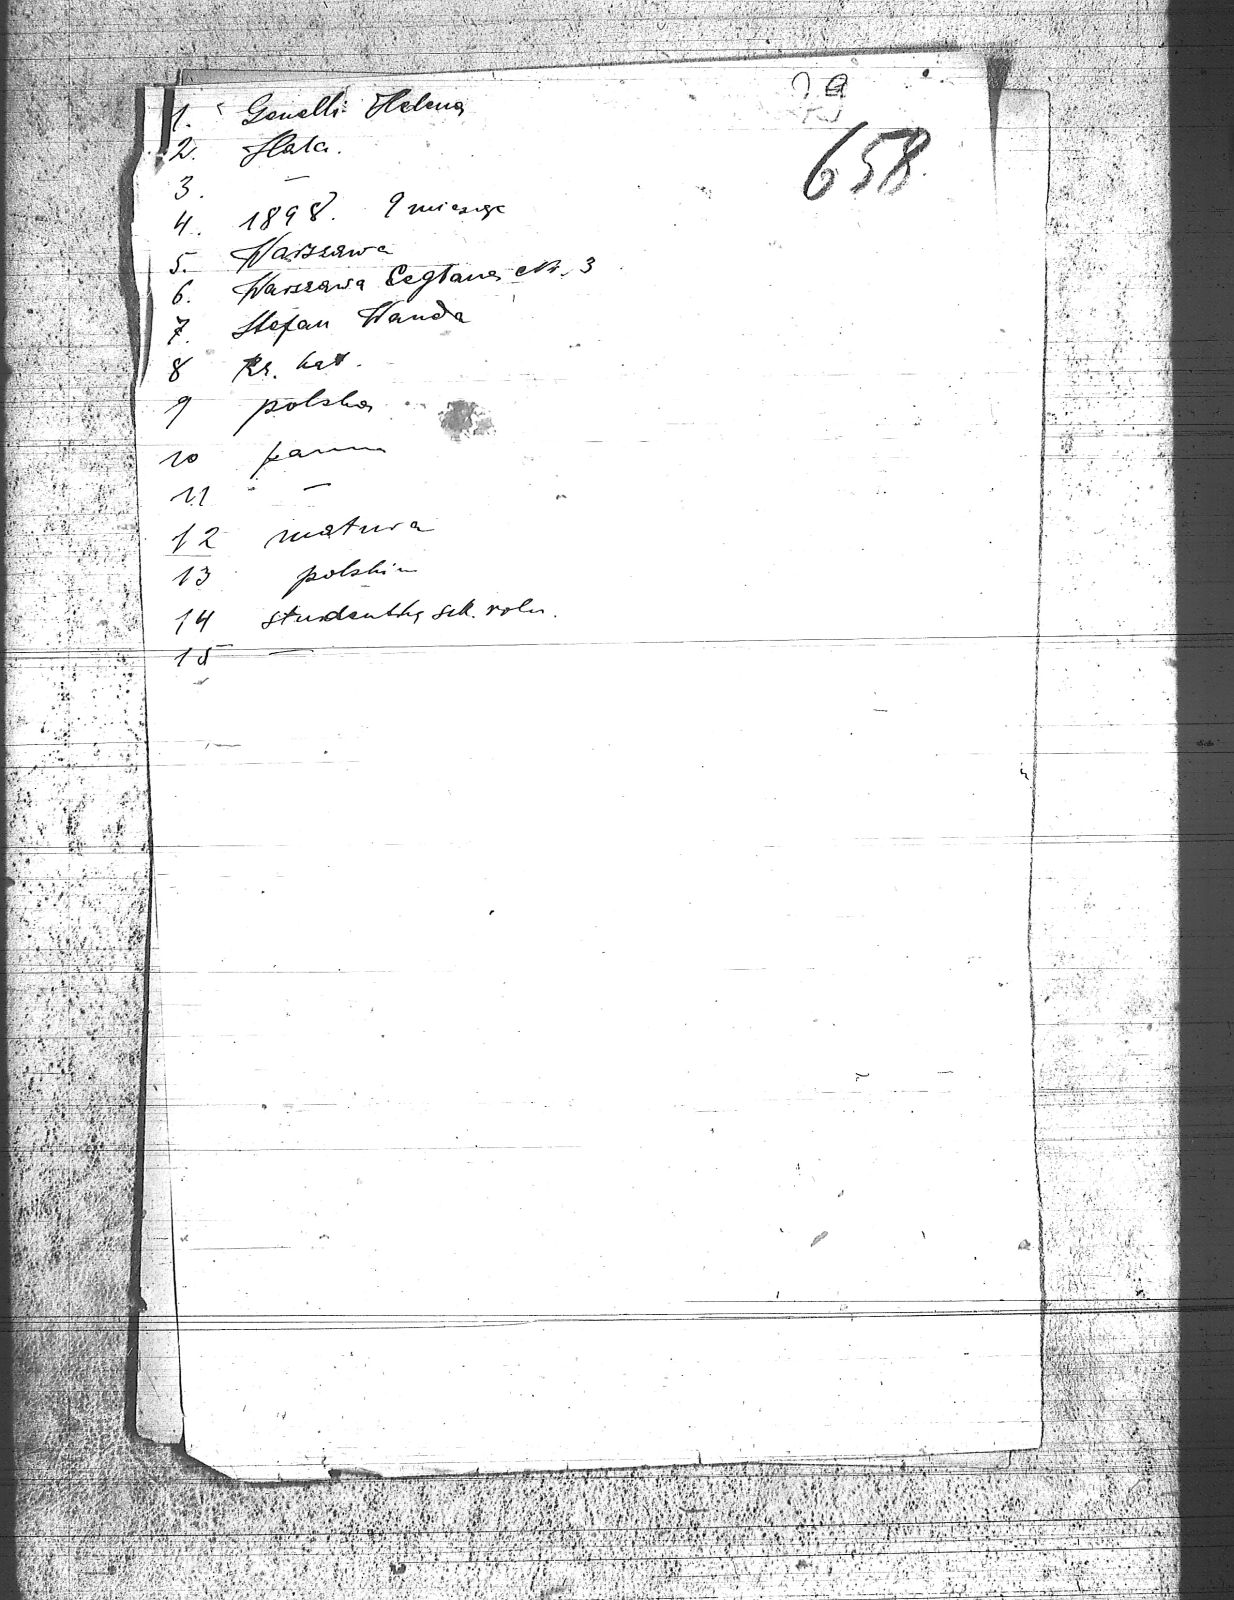 658
1. Gonelli Helena
2. Hala.
3. —
4. 1898. 9 miesiąc
5. Warszawa
6. Warszawa Ceglana Nr. 3
7. Stefan Wanda
8 Rz. kat.
9 polska
10 panna
11 —
12 matura
13 polskim
14 studentka szk. roln.
15 —